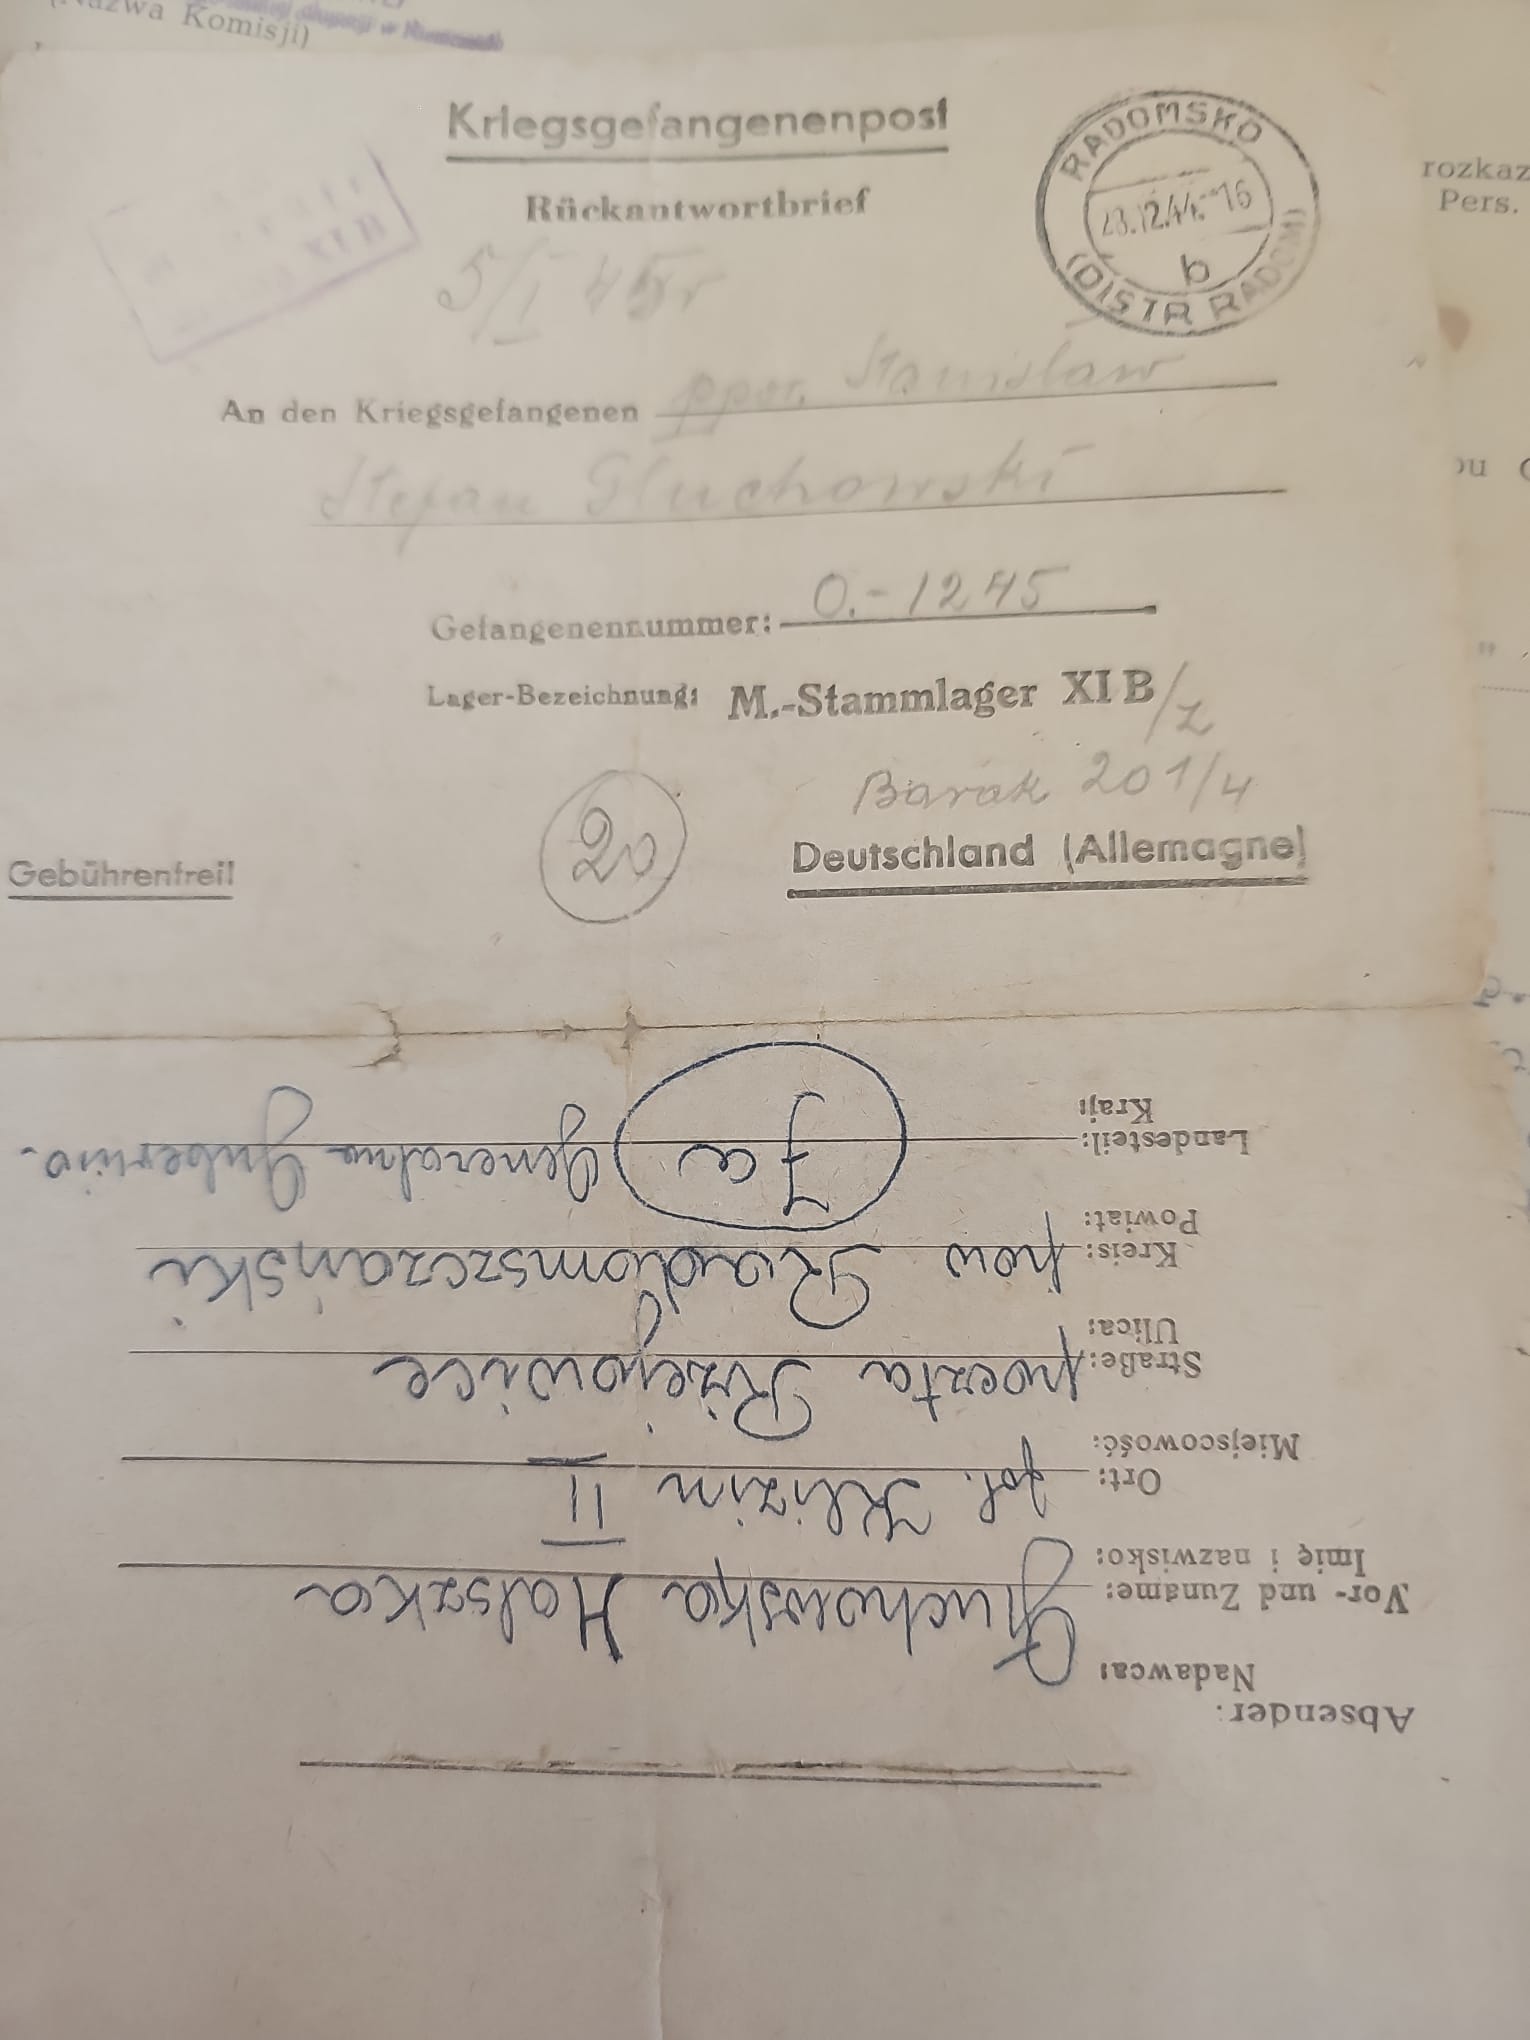 (Nazwa Komisji)
Kriegsgefangenenpost
Rückantwortbrief
RADOMSKO
28.12.44.-16
b
(DISTR RADOM)
XI B
5/I 45r
An den Kriegsgefangenen ppor. Stanisław
Stefan Głuchowski
Gefangenennummer: O.-1245
Lager-Bezeichnung: M.-Stammlager XI B/z
Barak 201/4
20
Gebührenfrei!
Deutschland (Allemagne)
rozkaz
Pers.
Absender:
Nadawca:
Vor- und Zuname: Głuchowska Halszka
Imię i nazwisko:
Ort: fol. Klizin II
Miejscowość:
Straße: poczta Rzejowice
Ulica:
Kreis: pow Radomszczański
Powiat:
Landesteil: Generalna Gubernia.
Kraj: